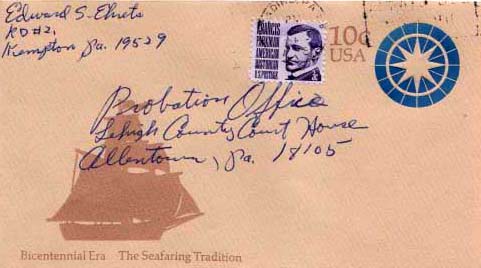 Edward S. Ehrets
RD#2,
Kempton Pa. 19529
FRANCIS
PARKMAN
AMERICAN
HISTORIAN
U.S. POSTAGE
3¢
10¢
USA
Probation Office
Lehigh County Court House
Allentown, Pa. 18105
Bicentennial Era The Seafaring Tradition